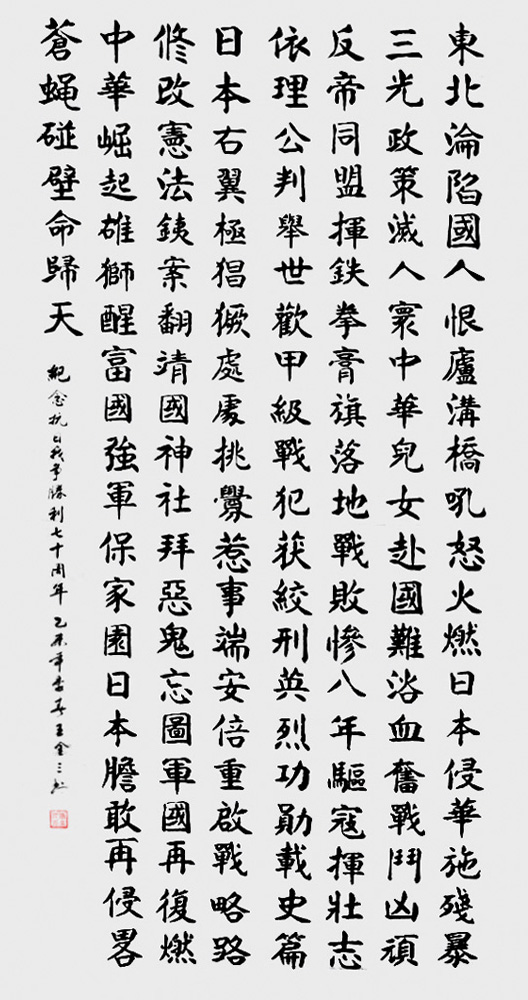 東北淪陷國人恨廬溝橋吼怒火燃日本侵華施殘暴
三光政策滅人寰中華兒女赴國難浴血奮戰鬥凶頑
反帝同盟揮鉄拳膏旗落地戰敗慘八年驅寇揮壯志
依理公判舉世歡甲級戰犯获絞刑英烈功勛載史篇
日本右翼極猖獗處處挑釁惹事端安倍重啟戰略路
修改憲法銕案翻靖國神社拜惡鬼忘圖軍國再復燃
中華崛起雄獅醒富國強軍保家園日本膽敢再侵畧
蒼蝇碰壁命歸天
紀念抗日战争勝利七十周年 乙未年王金三